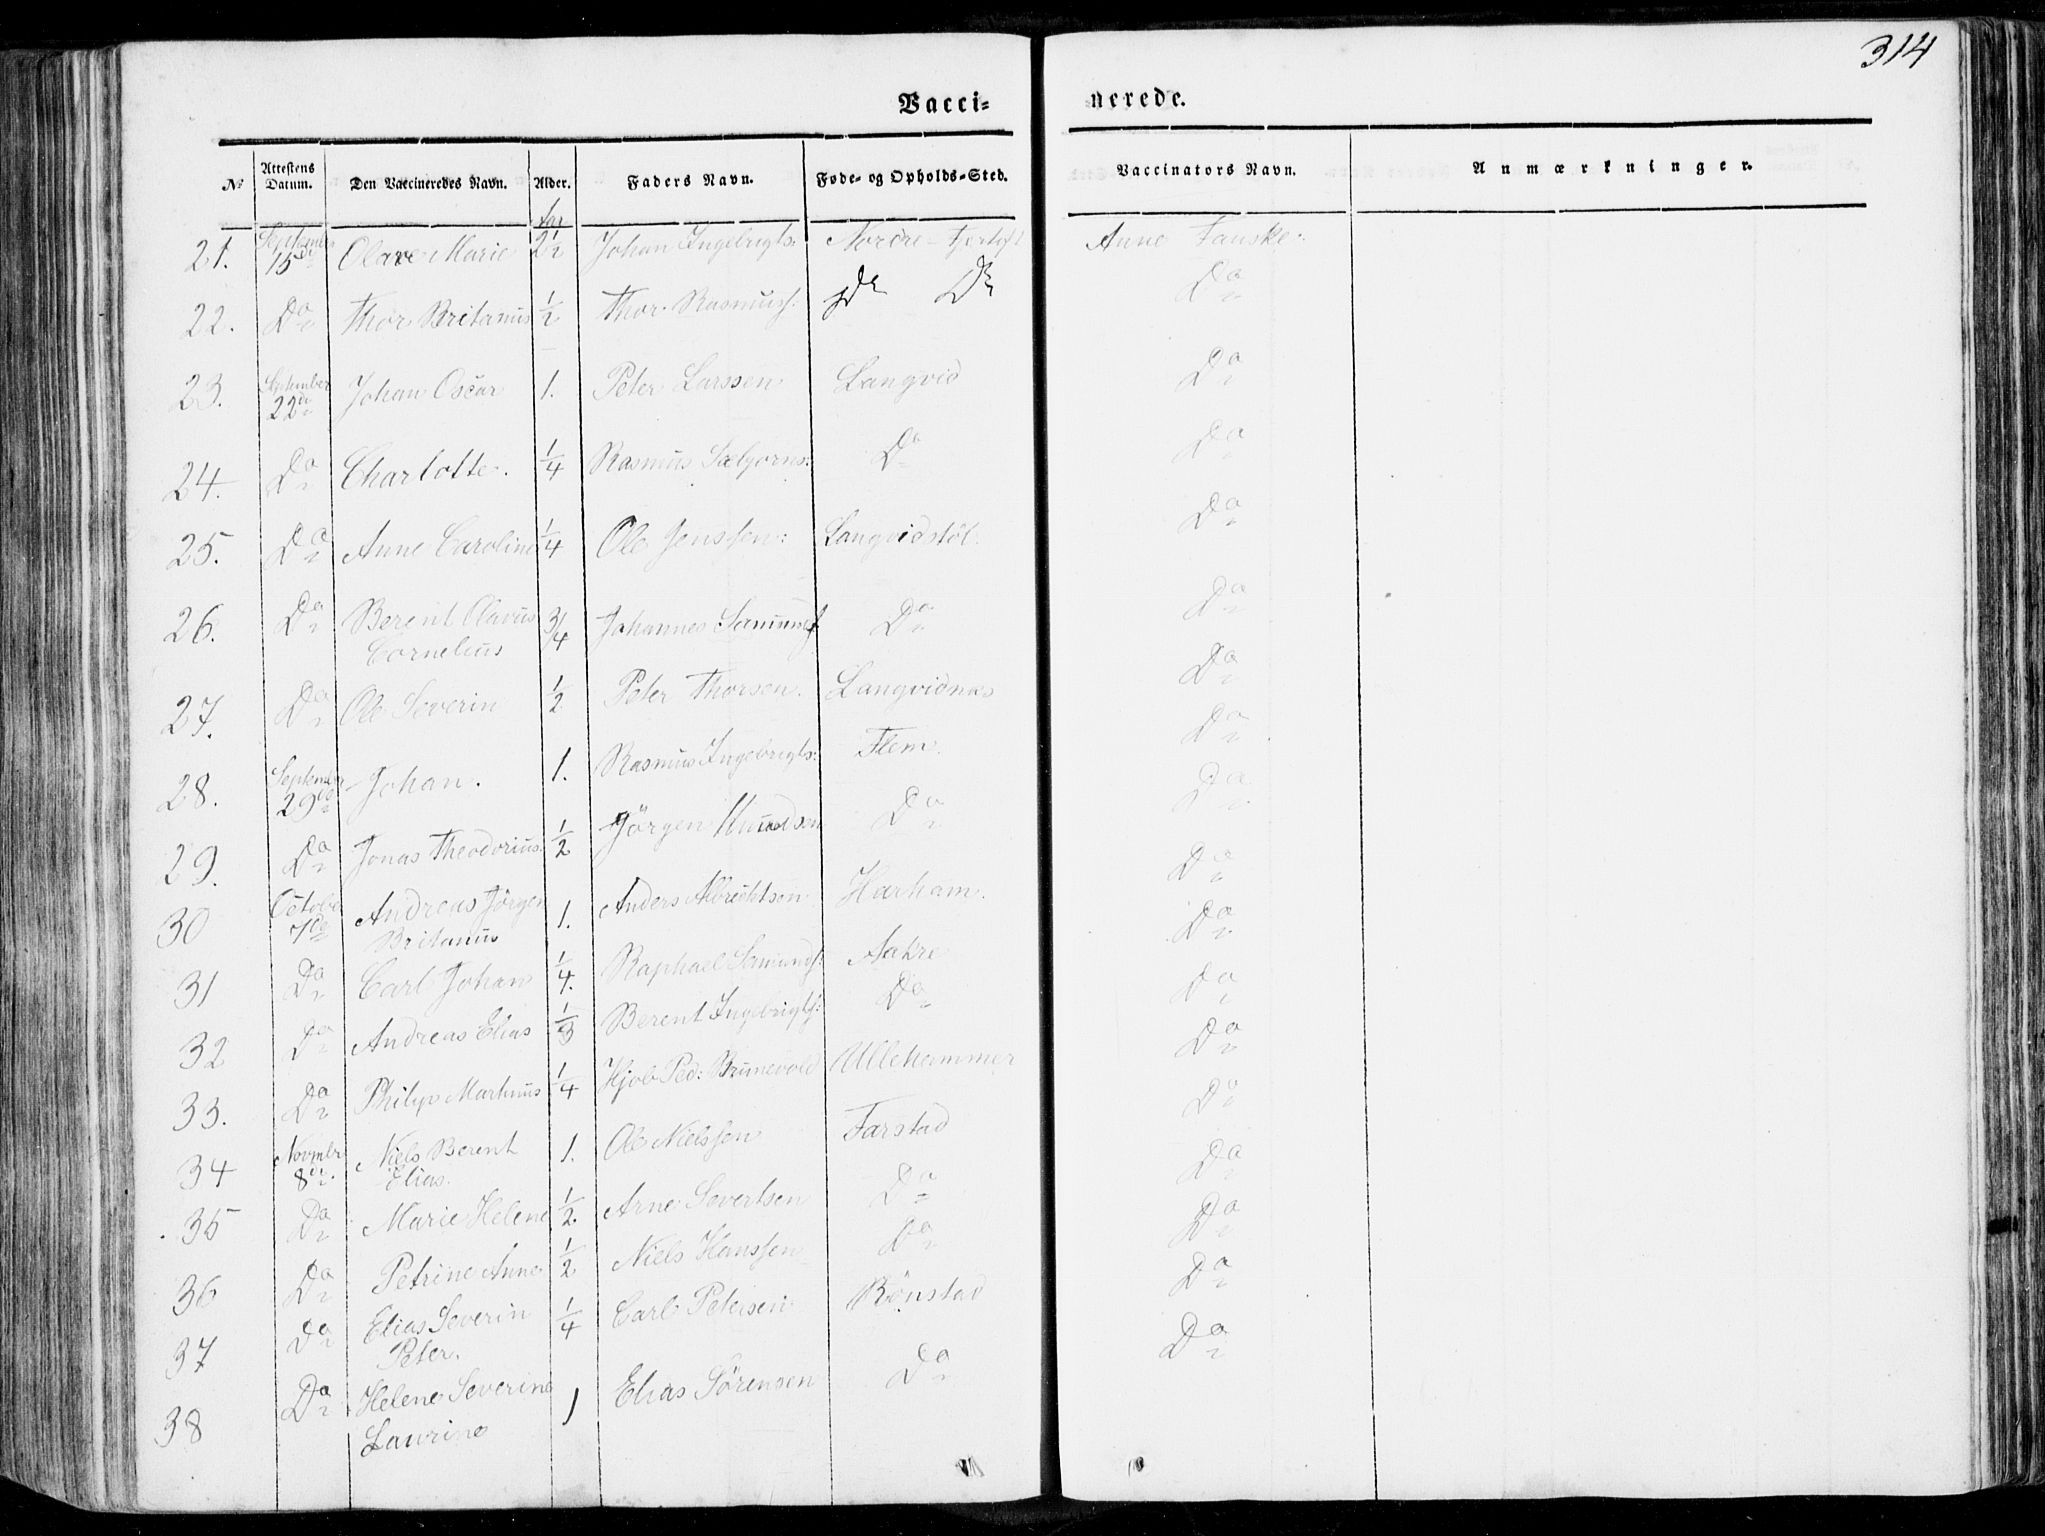 314
Vacci= nerede.
No Attestens Datum. Den Vaccineredes Navn. Alder. Faders Navn. Føde- og Opholds-Sted. Vaccinators Navn. Anmærkninger.
Aar
21. September 15de Olave Marie 2½ Johan Ingebrigts: Nordre - Fjertoft Anne Fauske.
22. Do Thor Britanus ½ Thor Rasmuss: Do Do Do
23. September 22de Johan Oscar 1. Peter Larssen Langvid Do
24. Do Charlotte. ¼ Rasmus Sæbjorns: Do Do
25. Do Anne Caroline ¼ Ole Jenssen: Langvidstöl Do
26. Do Berent Olavus ¾ Johannes Samunds Do Do
Cornelius
27. Do Ole Severin ½ Peter Thorsen. Langvidnæs Do
28. September 29de Johan. 1. Rasmus Ingebrigts: Flem. Do
29. Do Jonas Theodorius ½ Jörgen Knudsen Do Do
30 October 7de Andreas Jörgen 1. Anders Albrechtsen Harham. Do
Britanus
31 Do Carl Johan ¼. Raphael Samunds: Aakre Do
32 Do Andreas Elias ⅓ Berent Ingebrigts: Do Do
33. Do Philip Martinus ¼ Hjob Ped: Brunevold Ullehammer Do
34 Novmbr 8de. Niels Berent 1. Ole Nielssen Farstad Do
Elias.
35 Do Marie Helene ½. Arne Severtsen Do Do
36 Do Petrine Anne ½ Niels Hanssen Do Do
37 Do Elias Severin ¼ Carl Petersen Rönstad Do
Peter.
38 Do Helene Severine 1 Elias Sörensen Do Do
Laurine